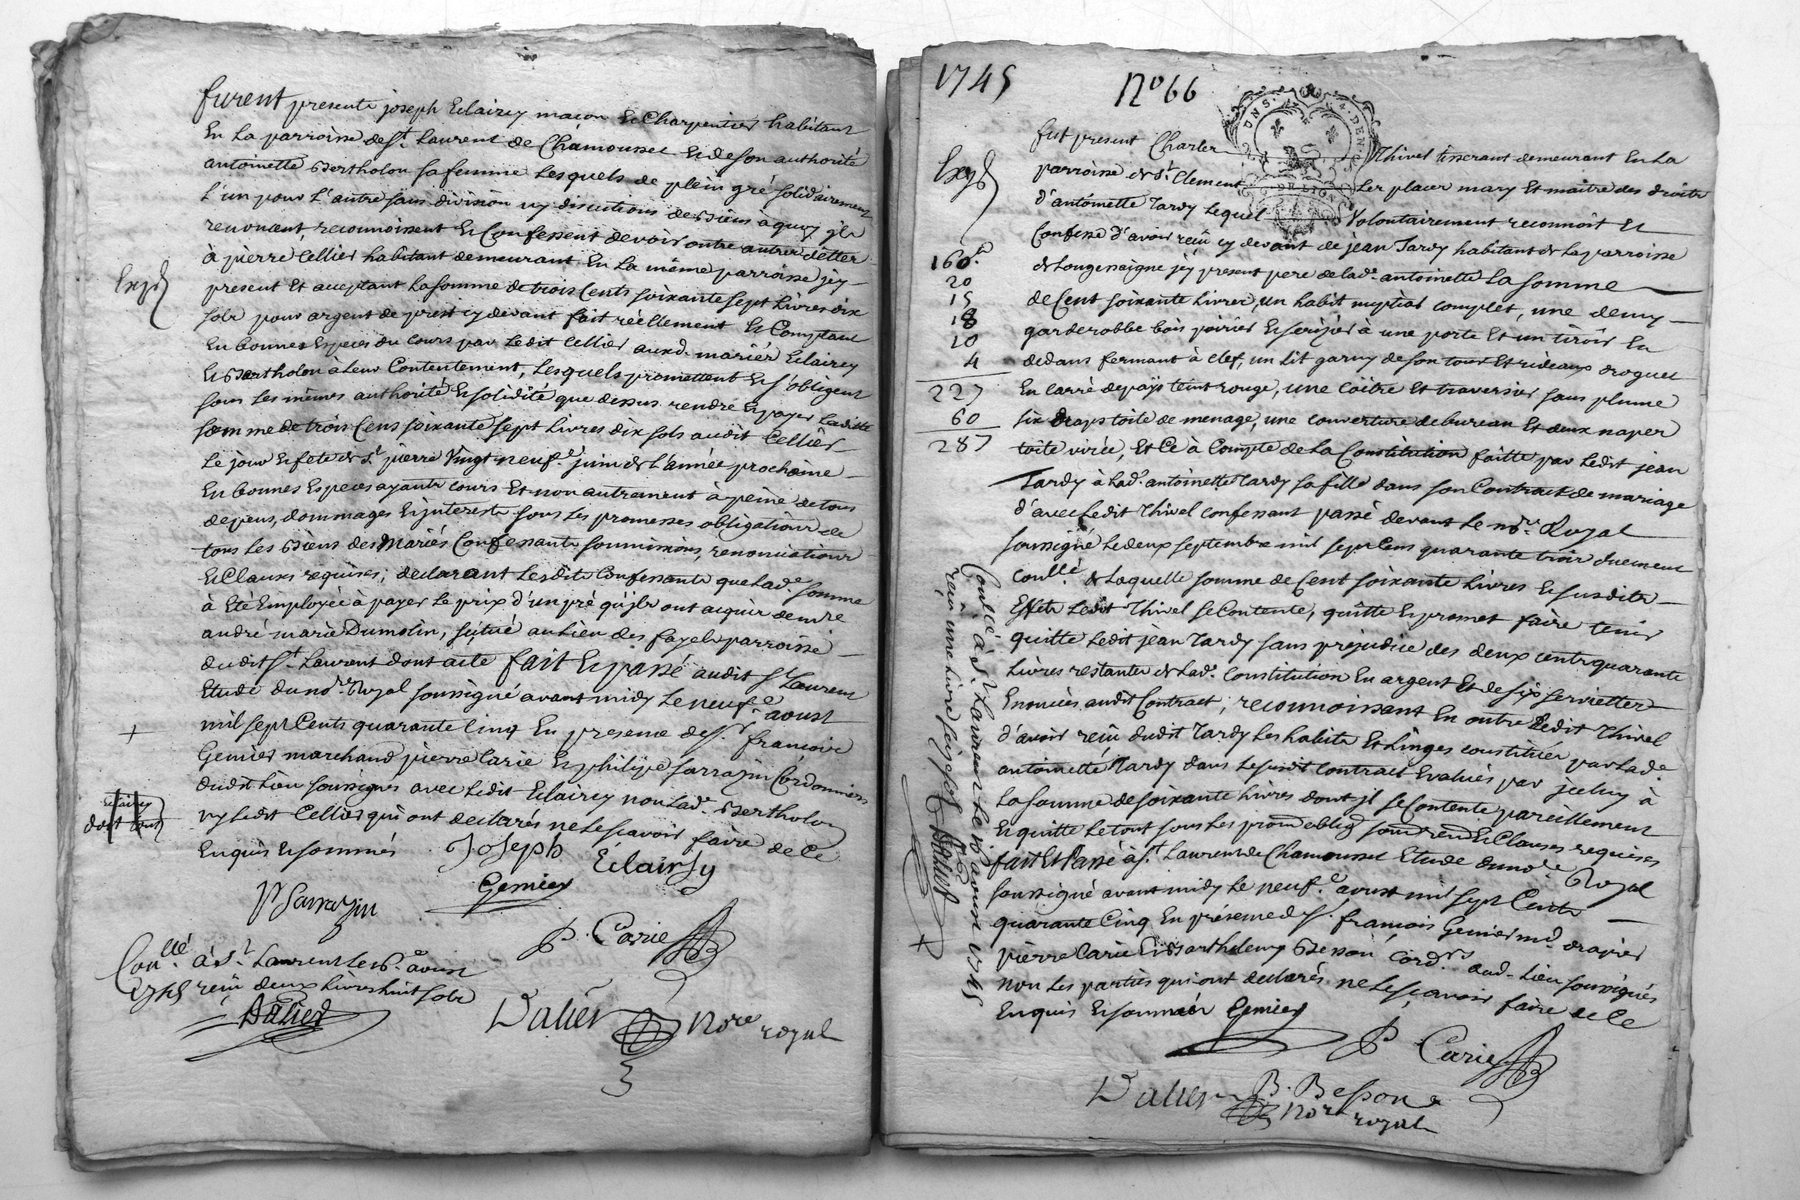 furent presents joseph Eclairsy maçon Et Charpentier habitant
En La parroisse de St. Laurent de Chamousset Et de son authorité
antoinette Bertholon sa femme Lesquels de plein gré solidairement
L'un pour L'autre sans division ny discution de Biens à quoy ils
renoncent, reconnoissent Et Confessent devoir outre autres dettes
à pierre Cellier habitant demeurant En La même parroisse jcy
present Et acceptant La somme de trois Cents soixante sept Livres dix
sols pour argent de prest cy devant fait réellement Et Comptant
En bonnes Especes du Cours par Ledit Cellier auxd. mariés Eclairsy
Et Bertholon à Leur Contentement, Lesquels promettent Et s'obligent
sous Les mêmes authorité Et solidité que dessus rendre Et payer Laditte
somme de trois Cens soixante sept Livres dix sols audit Cellier
Le jour Et fete de St. pierre Vingt neufe. juin de L'année prochaine
En bonnes Especes ayants cours Et non autrement à peine de tous
depens, dommages Et jnterests sous Les promesses obligations de
tous Les Biens des Mariés Confessants soumissions, renonciations
Et Clauses requises; declarant Lesdits Confessants que Lade. somme
à Eté Employée à payer Le prix d'un pré qu'jls ont acquis de mre
andré marie Dumolin, scitué au Lieu des fayels parroisse
dudit St. Laurent dont acte fait Et passé audit St. Laurent
Etude du nore. Royal soussigné avant midy Le neufe. aoust
mil sept Cents quarante Cinq En presence de Sr. francois
Genier marchand pierre Carie Et philipe Sarrazin Cordonniers
dudit Lieu soussignes avec Ledit Eclairsy non Lade. Bertholon
ny Ledit Cellier qui ont declarés ne Le scavoir faire de Ce
Enquis Et sommés. Joseph Eclairsy
Genier
P Sarrazin
P. Carie
Conllé. à St. Laurent Le 16e. aoust
1745 reçu deux Livres huit sols
Dalier
Dalier Nore royal
Expé
+
Eclairsy
doit tout
1745 No 66
DE LION
Expé
fut present Charles Thivel tisserant demeurant En La
parroisse de St. Clement Les places mary Et maitre des droits
d'antoinette Tardy Lequel Volontairement reconnoit Et
Confesse d'avoir reçû cy devant de jean Tardy habitant de La parroisse
de Longessaigne jcy present pere de Lade. antoinette La somme
de Cent soixante Livres, un habit nuptial complet, une demy
garderobbe bois poirier Et serizier à une porte Et un tiroir En
dedans fermant à clef, un Lit garny de son tour Et rideaux droguet
En Carré de pays teint rouge, une Coitre Et traversier sans plume
six draps toile de menage, une couverture de bureau Et deux napes
toile virée, Et Ce à Compte de La Constitution faitte par Ledit jean
Tardy à Lade. antoinette Tardy sa fille dans son Contract de mariage
d'avec Ledit Thivel confessant passé devant Le nore. Royal
soussigné Le deux septembre mil sept Cens quarante trois duement
conllé. de Laquelle somme de Cent soixante Livres Et susdits
Effets Ledit Thivel se Contente, quitte Et promet faire tenir
quitte Ledit jean Tardy sans prejudice des deux cents quarante
Livres restantes de Lade. Constitution En argent Et de six serviettes
Enoncées audit Contract; reconnoissant En outre Ledit Thivel
d'avoir reçû dudit Tardy Les habits Et Linges constitués par Lade.
antoinette Tardy dans Le susdit Contract Evalués par jceluy à
La somme de soixante Livres dont jl se Contente pareillement
Et quitte Le tout sous Les prom. oblig. soum. ren. Et Clauses requises
fait Et Passé à St. Laurent de Chamousset Etude du nore. Royal
soussigné avant midy Le neufe. aoust mil sept Cents
quarante Cinq En présence de Sr. françois Genier md. drapier
pierre Carie Et Barthelemy Besson Cordrs. dud. Lieu soussignés
non Les parties qui ont declarés ne Le sçavoir faire de Ce
Enquis Et sommés Genier
P. Carie
B. Besson
Dalier Nore royal
160
20
15
18
10
4
227
60
287
Conllé à St. Laurent Le 16 aoust 1745
reçû une Livre
Dalier
+